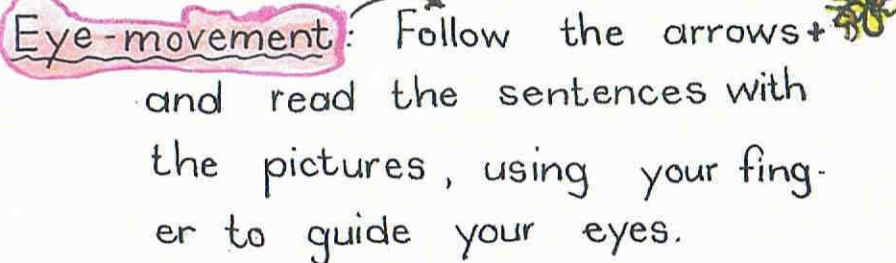 Eye-movement: Follow the arrows +
and read the sentences with
the pictures, using your fing-
er to guide your eyes.